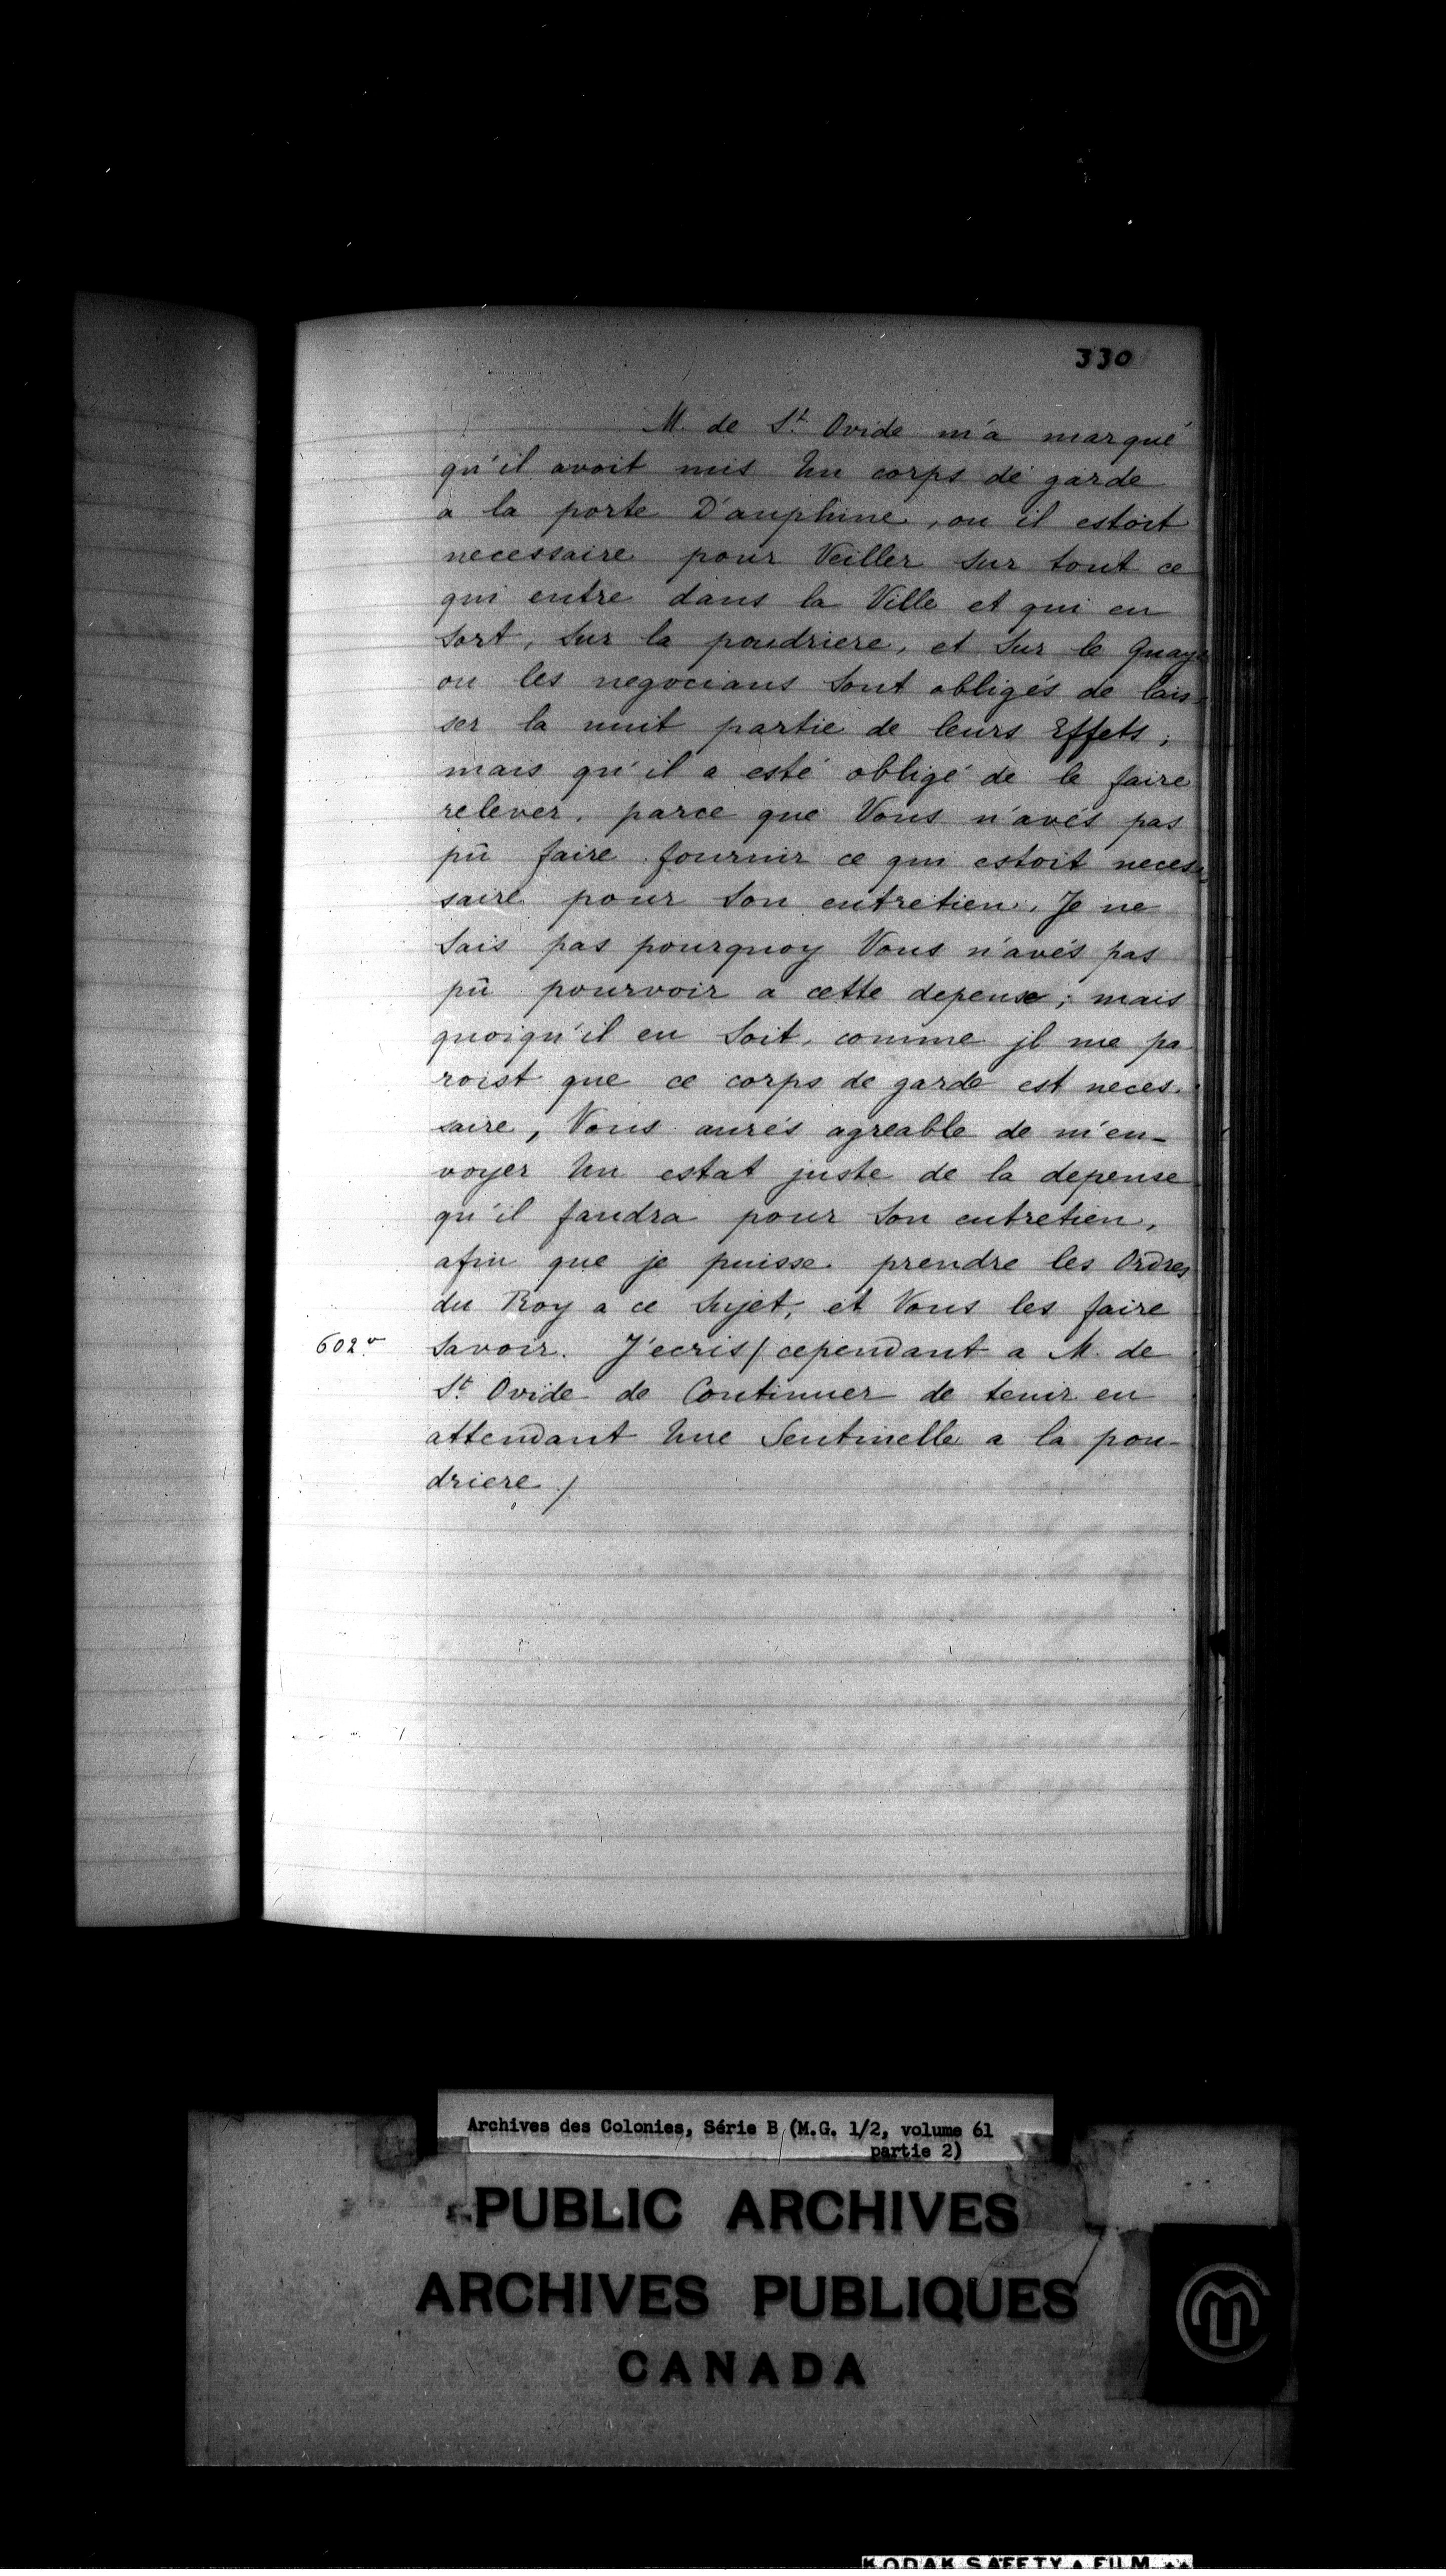 330
M. de St. Ovide m'a marqué
qu'il avoit mis Un corps de garde
a la porte D'auphine, ou il estoit
necessaire pour Veiller sur tout ce
qui entre dans la Ville et qui en
sort, sur la poudriere, et sur le Quay
ou les negocians sont obligés de lais-
ser la nuit partie de leurs Effets;
mais qu'il a esté obligé de le faire
relever, parce que Vous n'avés pas
pû faire fournir ce qui estoit neces-
saire pour son entretien. Je ne
sais pas pourquoy Vous n'avés pas
pû pourvoir a cette depense; mais
quoiqu'il en soit, comme jl me pa-
roist que ce corps de garde est neces-
saire, Vous aurés agreable de m'en-
voyer Un estat juste de la depense
qu'il faudra pour son entretien,
afin que je puisse prendre les Ordres
du Roy a ce sujet, et Vous les faire
602v. savoir. J'ecris/cependant a M. de
St. Ovide de Continuer de tenir en
attendant Une Sentinelle a la pou-
driere /.
Archives des Colonies, Série B (M.G. 1/2, volume 61
partie 2)
PUBLIC ARCHIVES
ARCHIVES PUBLIQUES
CANADA
KODAK SAFETY FILM